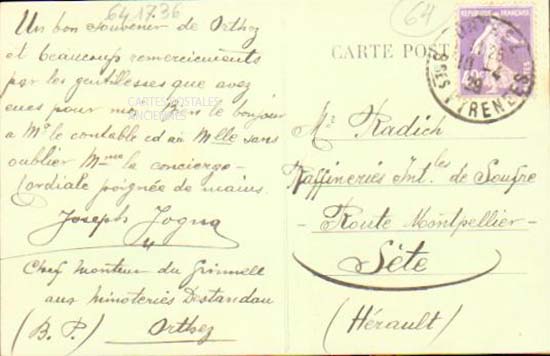 641736
Un bon souvenir de Orthez
et beaucoup remerciements
par les gentillesses que avez
eues pour moi. Bien le bonjour
à Mr le contable id à Mlle sans
oublier Mme la concierge –
Cordiale poignée de mains.
Joseph Jogna
Chef monteur du Grinnell
aux Minoteries Destandau
(B. P.) Orthez
CARTES POSTALES
ANCIENNES
64
RÉPUBLIQUE FRANÇAISE
CARTE POST
ORTHEZ
BSES PYRENEES
Mr Radich
Raffineries Intles de Soufre
– Route Montpellier –
Sète
(Hérault)